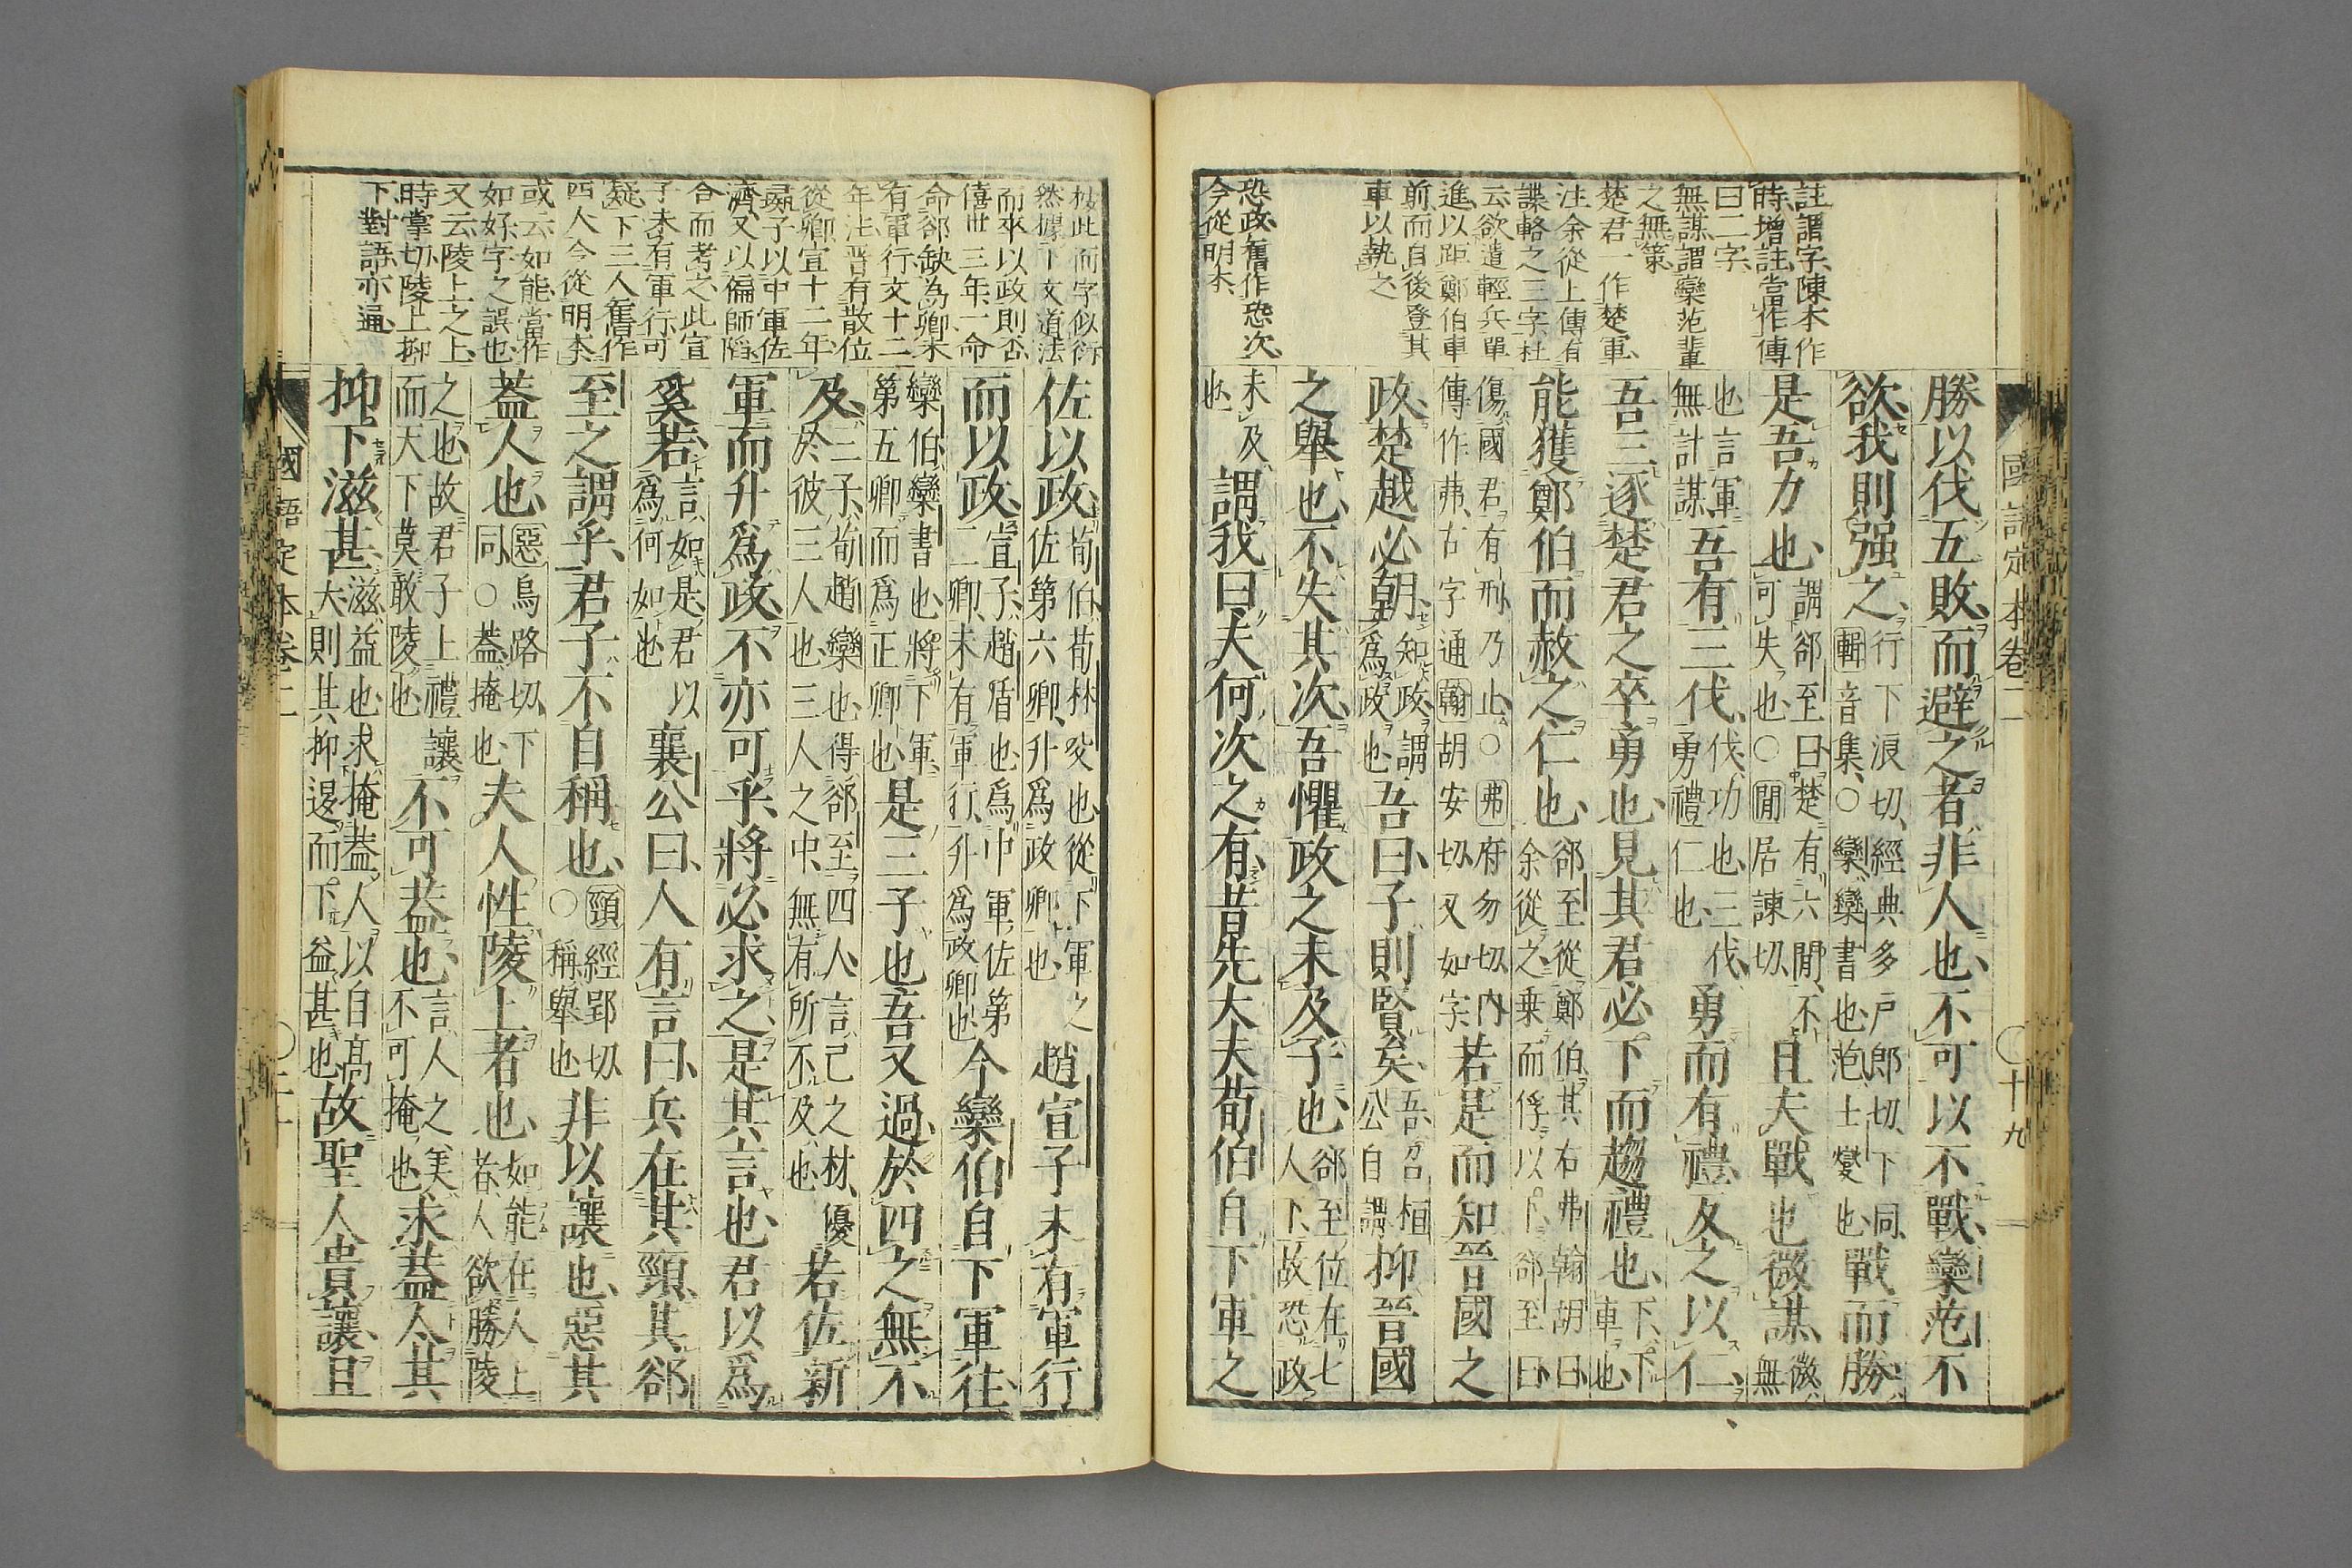 註謂字陳本作
時增註當作傳
曰二字
無謀謂欒范輩
之無策
楚君一作楚軍
注余從上傳有
諜輅之三字杜
云欲遣輕兵單
進以距鄭伯車
前而自後登其
車以執之
恐政舊作恐次
今從明本
國語定本卷二
〇十九
勝以伐五敗而避之者非人也不可以不戰欒范不
欲我則强之行下浪切經典多戶郎切下同輯音集○欒欒書也范士燮也戰而勝
是吾力也謂郤至曰楚有六閒不可失也○閒居諫切且夫戰也微謀微無
也言軍無計謀吾有三伐伐功也三伐勇禮仁也勇而有禮反之以仁
吾三逐楚君之卒勇也見其君必下而趨禮也下下車也
能獲鄭伯而赦之仁也郤至從鄭伯其右弗翰胡曰余從之乘而俘以下郤至曰
傷國君有刑乃止○弗府勿切内傳作茀古字通翰胡安切又如字若是而知晉國之
政楚越必朝知政謂爲政也吾曰子則賢矣吾召桓公自謂抑晉國
之舉也不失其次吾懼政之未及子也郤至位在七人下故恐政
未及也謂我曰夫何次之有昔先大夫荀伯自下軍之
彼此而字似衍
然據下文道法
而卒以政則否
僖卅三年一命
命郤缺爲卿未
有軍行文十二
年注晉有散位
從卿宣十二年
彘子以中軍佐
濟又以偏師陷
合而考之此宣
子未有軍行可
疑下三人舊作
四人今從明本
或云如能當作
如好字之誤也
又云陵上之上
時掌切陵上抑
下對語亦通
佐以政荀伯荀林父也從下軍之佐第六卿升爲政卿也趙宣子未有軍行
而以政宣子趙盾也爲中軍佐第一卿未有軍行升爲政卿也今欒伯自下軍往
欒伯欒書也將下軍第五卿而爲正卿也是三子也吾又過於四之無不
及二子荀趙欒也得郤至四人言己之材優於彼三人也三人之中無有所不及也若佐新
軍而升爲政不亦可乎將必求之是其言也君以爲
奚若言如是君以爲何如也襄公曰人有言曰兵在其頸其郤
至之謂乎君子不自稱也頸經郢切○稱舉也非以讓也惡其
蓋人也惡烏路切下同○蓋掩也夫人性陵上者也如能在人上者人欲勝陵
之也故君子上禮讓而天下莫敢陵也不可蓋也言人之美不可掩也求蓋人其
抑下滋甚滋益也求掩蓋人以自高大則其抑退而下益甚也故聖人貴讓且
國語定本卷二
〇二十